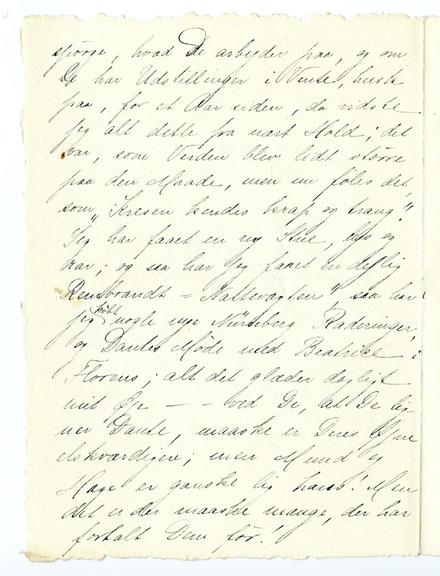 spørge, hvad De arbejder paa, og om
De har Udstillinger i Vente, husk
paa, for et Aar siden, da vidste
jeg alt dette fra nært Hold; det
var, som Verden blev lidt større
paa den Maade, men nu føles det,
som "Kresen kendes knap og trang".
Jeg har faaet en ny Stue, lys og
rar; og saa har jeg faaet en dejlig
Rembrandt = "Nattevagten", saa har
jeg købt nogle nye Nürnberg Raderinger,
og Dantes Møde med Beatrice i
Florens; alt det glæder dagligt
mit Øje - - ved De, at De lig
ner Dante, maaske er Deres Øjne
elskværdigere; men Mund og
Hage er ganske lig hans! Men
det er der maaske mange, der har
fortalt Dem før!